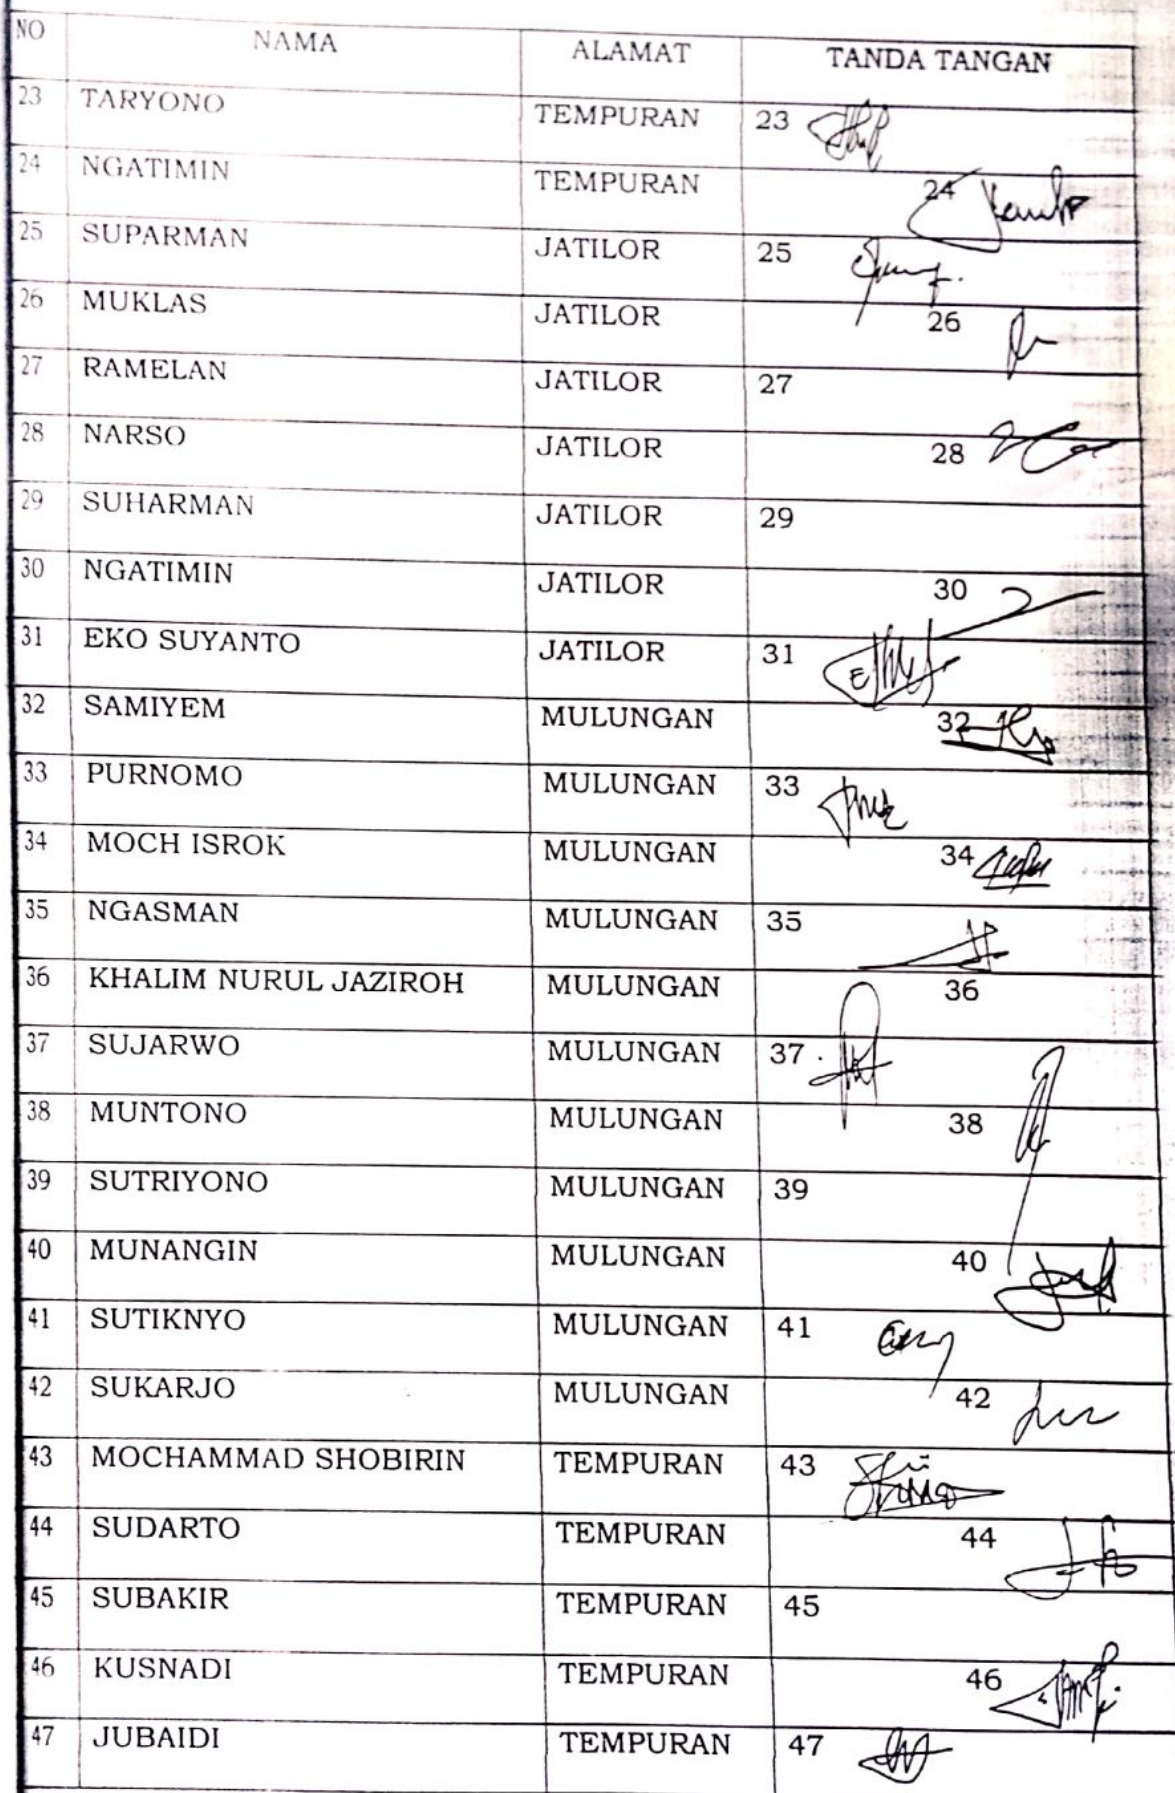 NO NAMA ALAMAT TANDA TANGAN
23 TARYONO TEMPURAN 23
24 NGATIMIN TEMPURAN 24
25 SUPARMAN JATILOR 25
26 MUKLAS JATILOR 26
27 RAMELAN JATILOR 27
28 NARSO JATILOR 28
29 SUHARMAN JATILOR 29
30 NGATIMIN JATILOR 30
31 EKO SUYANTO JATILOR 31
32 SAMIYEM MULUNGAN 32
33 PURNOMO MULUNGAN 33
34 MOCH ISROK MULUNGAN 34
35 NGASMAN MULUNGAN 35
36 KHALIM NURUL JAZIROH MULUNGAN 36
37 SUJARWO MULUNGAN 37
38 MUNTONO MULUNGAN 38
39 SUTRIYONO MULUNGAN 39
40 MUNANGIN MULUNGAN 40
41 SUTIKNYO MULUNGAN 41
42 SUKARJO MULUNGAN 42
43 MOCHAMMAD SHOBIRIN TEMPURAN 43
44 SUDARTO TEMPURAN 44
45 SUBAKIR TEMPURAN 45
46 KUSNADI TEMPURAN 46
47 JUBAIDI TEMPURAN 47